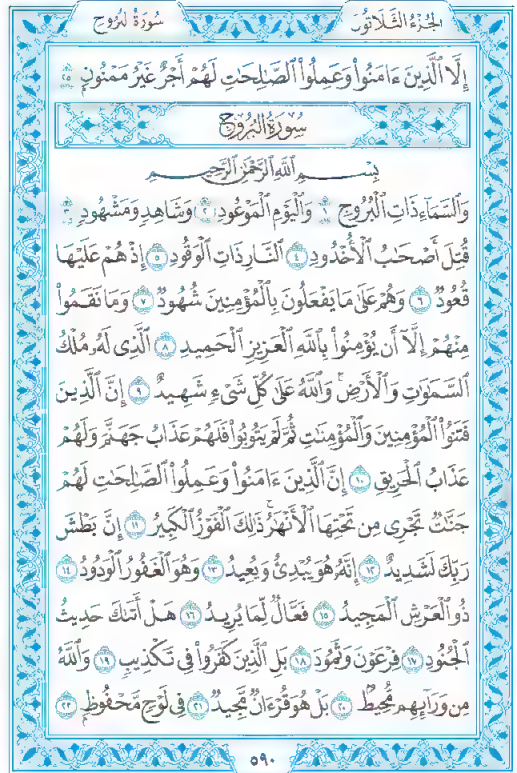 الجزء الثلاثون
سورة البروج
إِلَّا ٱلَّذِينَ ءَامَنُوا۟ وَعَمِلُوا۟ ٱلصَّٰلِحَٰتِ لَهُمْ أَجْرٌ غَيْرُ مَمْنُونٍ ٢٥
سُورَةُ البُرُوجِ
بِسْمِ ٱللَّهِ ٱلرَّحْمَٰنِ ٱلرَّحِيمِ
وَٱلسَّمَآءِ ذَاتِ ٱلْبُرُوجِ ١ وَٱلْيَوْمِ ٱلْمَوْعُودِ ٢ وَشَاهِدٍ وَمَشْهُودٍ ٣
قُتِلَ أَصْحَٰبُ ٱلْأُخْدُودِ ٤ ٱلنَّارِ ذَاتِ ٱلْوَقُودِ ٥ إِذْ هُمْ عَلَيْهَا
قُعُودٌ ٦ وَهُمْ عَلَىٰ مَا يَفْعَلُونَ بِٱلْمُؤْمِنِينَ شُهُودٌ ٧ وَمَا نَقَمُوا۟
مِنْهُمْ إِلَّآ أَن يُؤْمِنُوا۟ بِٱللَّهِ ٱلْعَزِيزِ ٱلْحَمِيدِ ٨ ٱلَّذِى لَهُۥ مُلْكُ
ٱلسَّمَٰوَٰتِ وَٱلْأَرْضِ ۚ وَٱللَّهُ عَلَىٰ كُلِّ شَىْءٍ شَهِيدٌ ٩ إِنَّ ٱلَّذِينَ
فَتَنُوا۟ ٱلْمُؤْمِنِينَ وَٱلْمُؤْمِنَٰتِ ثُمَّ لَمْ يَتُوبُوا۟ فَلَهُمْ عَذَابُ جَهَنَّمَ وَلَهُمْ
عَذَابُ ٱلْحَرِيقِ ١٠ إِنَّ ٱلَّذِينَ ءَامَنُوا۟ وَعَمِلُوا۟ ٱلصَّٰلِحَٰتِ لَهُمْ
جَنَّٰتٌ تَجْرِى مِن تَحْتِهَا ٱلْأَنْهَٰرُ ۚ ذَٰلِكَ ٱلْفَوْزُ ٱلْكَبِيرُ ١١ إِنَّ بَطْشَ
رَبِّكَ لَشَدِيدٌ ١٢ إِنَّهُۥ هُوَ يُبْدِئُ وَيُعِيدُ ١٣ وَهُوَ ٱلْغَفُورُ ٱلْوَدُودُ ١٤
ذُو ٱلْعَرْشِ ٱلْمَجِيدُ ١٥ فَعَّالٌ لِّمَا يُرِيدُ ١٦ هَلْ أَتَىٰكَ حَدِيثُ
ٱلْجُنُودِ ١٧ فِرْعَوْنَ وَثَمُودَ ١٨ بَلِ ٱلَّذِينَ كَفَرُوا۟ فِى تَكْذِيبٍ ١٩ وَٱللَّهُ
مِن وَرَآئِهِم مُّحِيطٌۢ ٢٠ بَلْ هُوَ قُرْءَانٌ مَّجِيدٌ ٢١ فِى لَوْحٍ مَّحْفُوظٍۭ ٢٢
٥٩٠